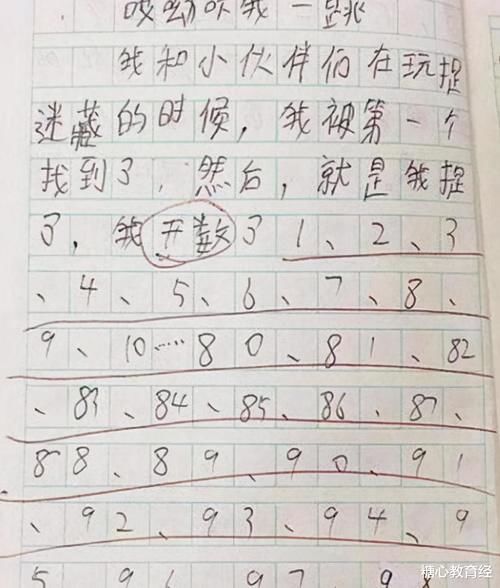 我一跳
我和小伙伴们在玩捉
迷藏的时候，我被第一个
找到了，然后，就是我捉
了，我开数了1、2、3
、4、5、6、7、8、
9、10……80、81、82
、83、84、85、86、87、
88、89、90、91
、92、93、94、9
5、96、97、98
糖心教育经